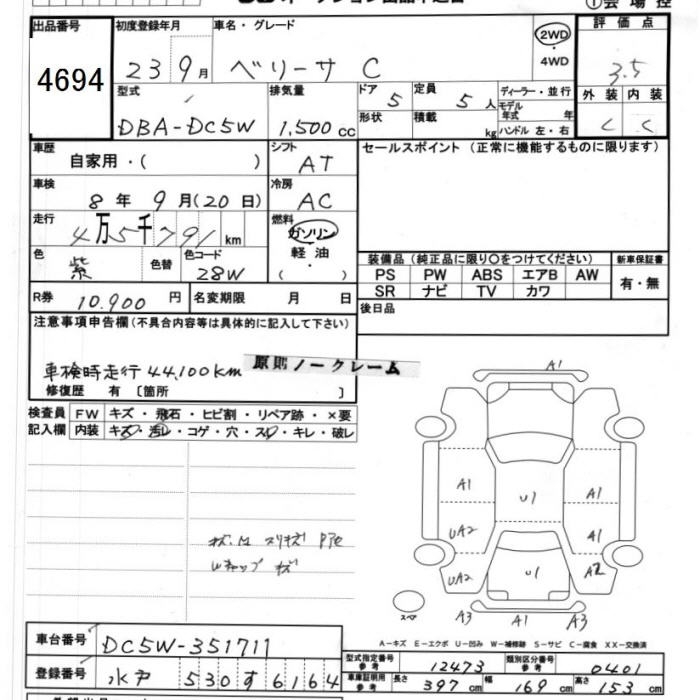 ①会場控
出品番号
4694
初度登録年月
23 9月
車名・グレード
ベリーサ C
2WD
・
4WD
評価点
3.5
型式
DBA-DC5W
排気量
1,500 cc
ドア
5
定員
5 人
形状
積載
kg
ディーラー・並行
モデル
年式 年
ハンドル 左・右
外装 内装
C C
車歴
自家用・( )
シフト
AT
セールスポイント(正常に機能するものに限ります)
車検
8年 9月(20日)
冷房
AC
走行
4万5千791km
燃料
ガソリン
軽油
( ・ )
色
紫
色替
色コード
28W
装備品(純正品に限り○をつけてください)
PS PW ABS エアB AW
SR ナビ TV カワ
新車保証書
有・無
R券 10,900 円
名変期限 月 日
後日品
注意事項申告欄(不具合内容等は具体的に記入して下さい)
車検時走行44,100km
原則ノークレーム
修復歴 有 [箇所 ]
検査員
記入欄
FW キズ・飛石・ヒビ割・リペア跡・×要
内装 キズ・汚レ・コゲ・穴・スレ・キレ・破レ
A1
A1
U1
A1
UA2
A1
UA2
U1
A2
スペア
A3
A1
A3
A-キズ E-エクボ U-凹み W-補修跡 S-サビ C-腐食 XX-交換済
車台番号
DC5W-351711
登録番号
水戸 530 す 6164
型式指定番号
参考
12473
類別区分番号
参考
0401
車庫証明用
参考
長さ 397cm 幅 169cm 高さ 153cm